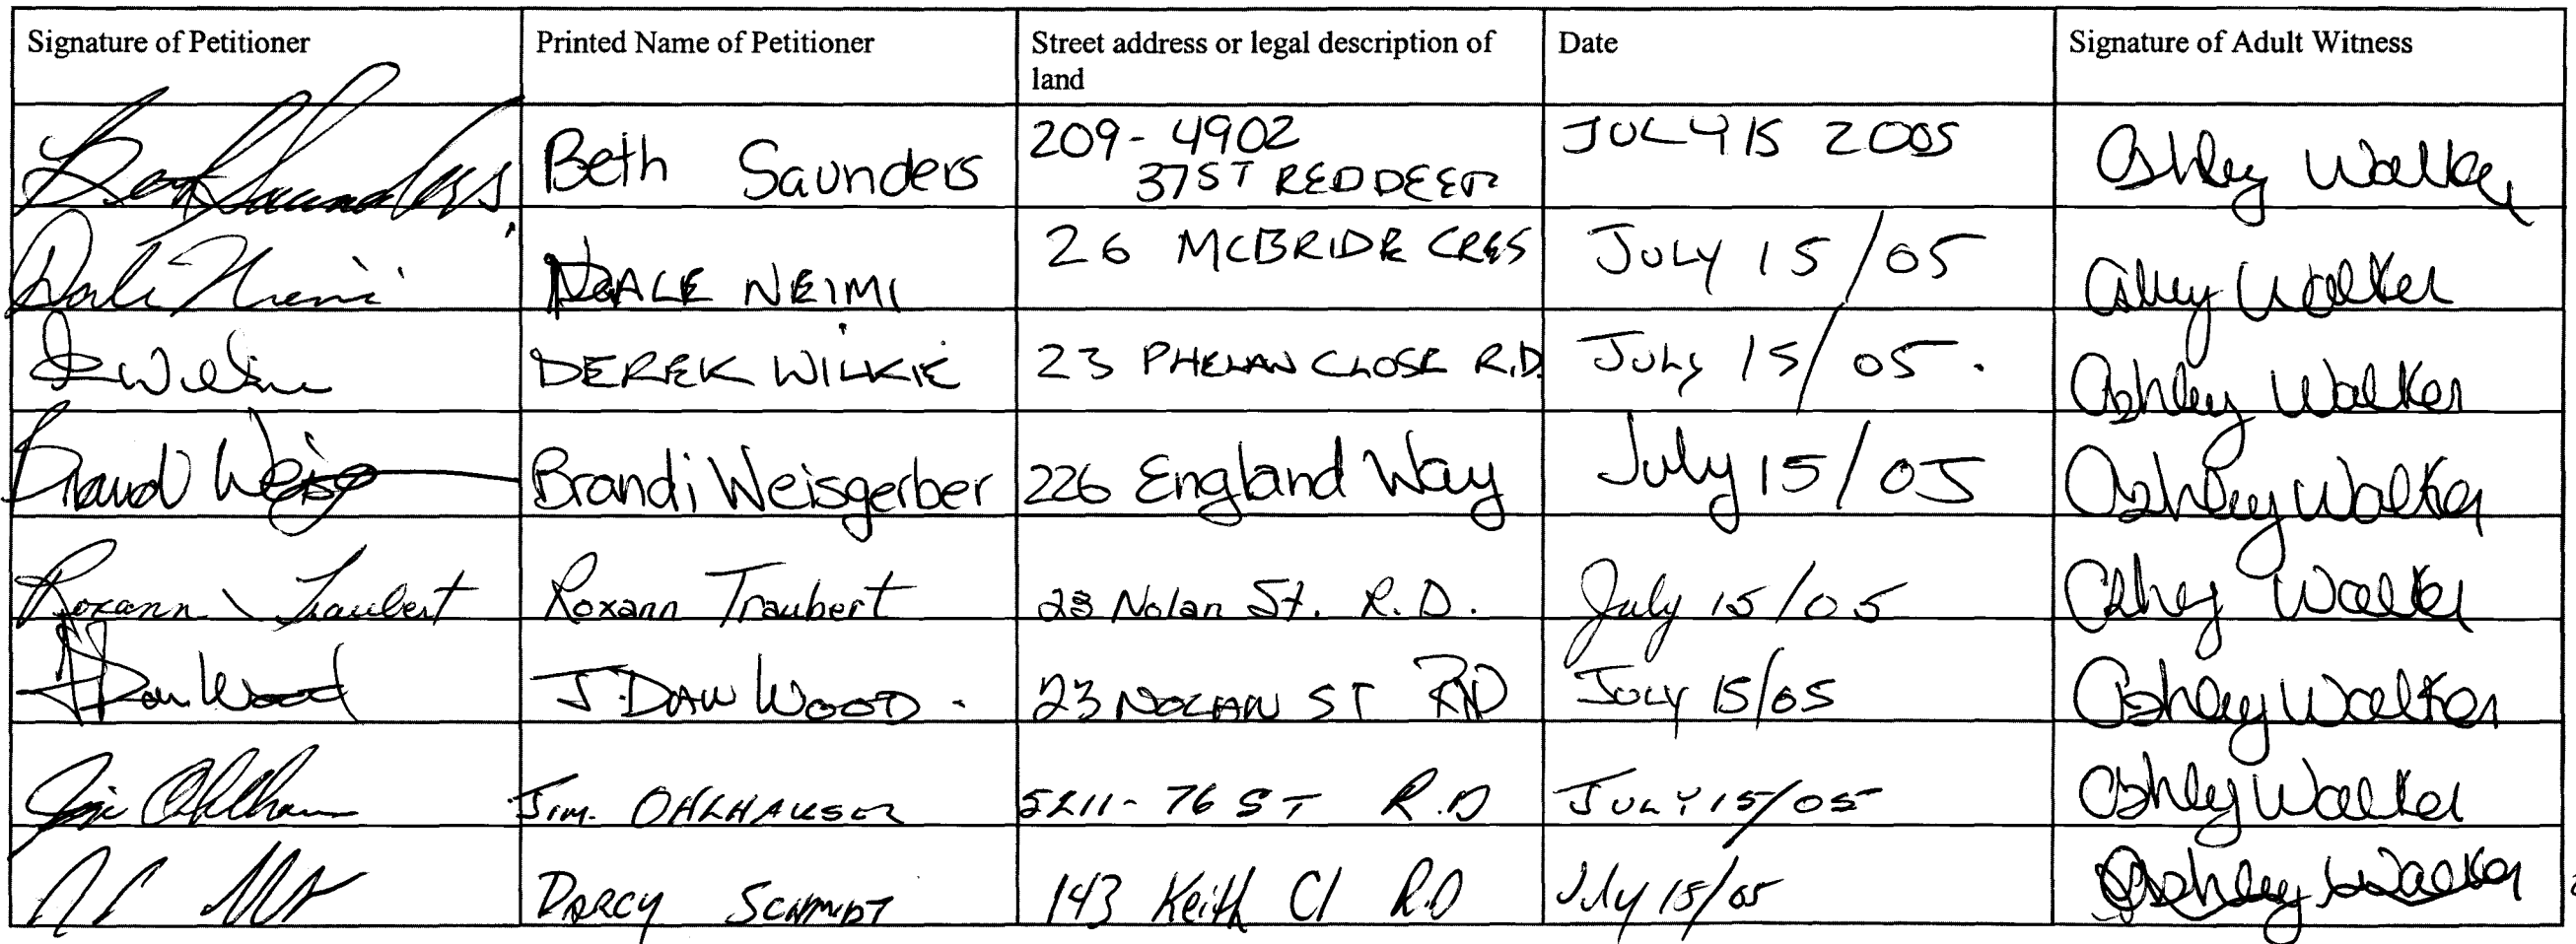 Signature of Petitioner Printed Name of Petitioner Street address or legal description of land Date Signature of Adult Witness
Beth Saunders Beth Saunders 209-4902 37ST RED DEER JULY 15 2005 Ashley Walker
Dale Niemi DALE NEIMI 26 MCBRIDE CRES JULY 15/05 Ashley Walker
D Wilkie DEREK WILKIE 23 PHELAN CLOSE R.D. JULY 15/05. Ashley Walker
Brandi Weisg Brandi Weisgerber 226 England Way July 15/05 Ashley Walker
Roxann Traubert Roxann Traubert 23 Nolan St. R.D. July 15/05 Ashley Walker
J Dan Wood J. DAN WOOD. 23 NOLAN ST RD JULY 15/05 Ashley Walker
Jim Ohlhauser JIM. OHLHAUSER 5211-76 ST R.D JULY 15/05 Ashley Walker
DARCY SCHMIDT 143 Keith Cl R.D July 15/05 Ashley Walker